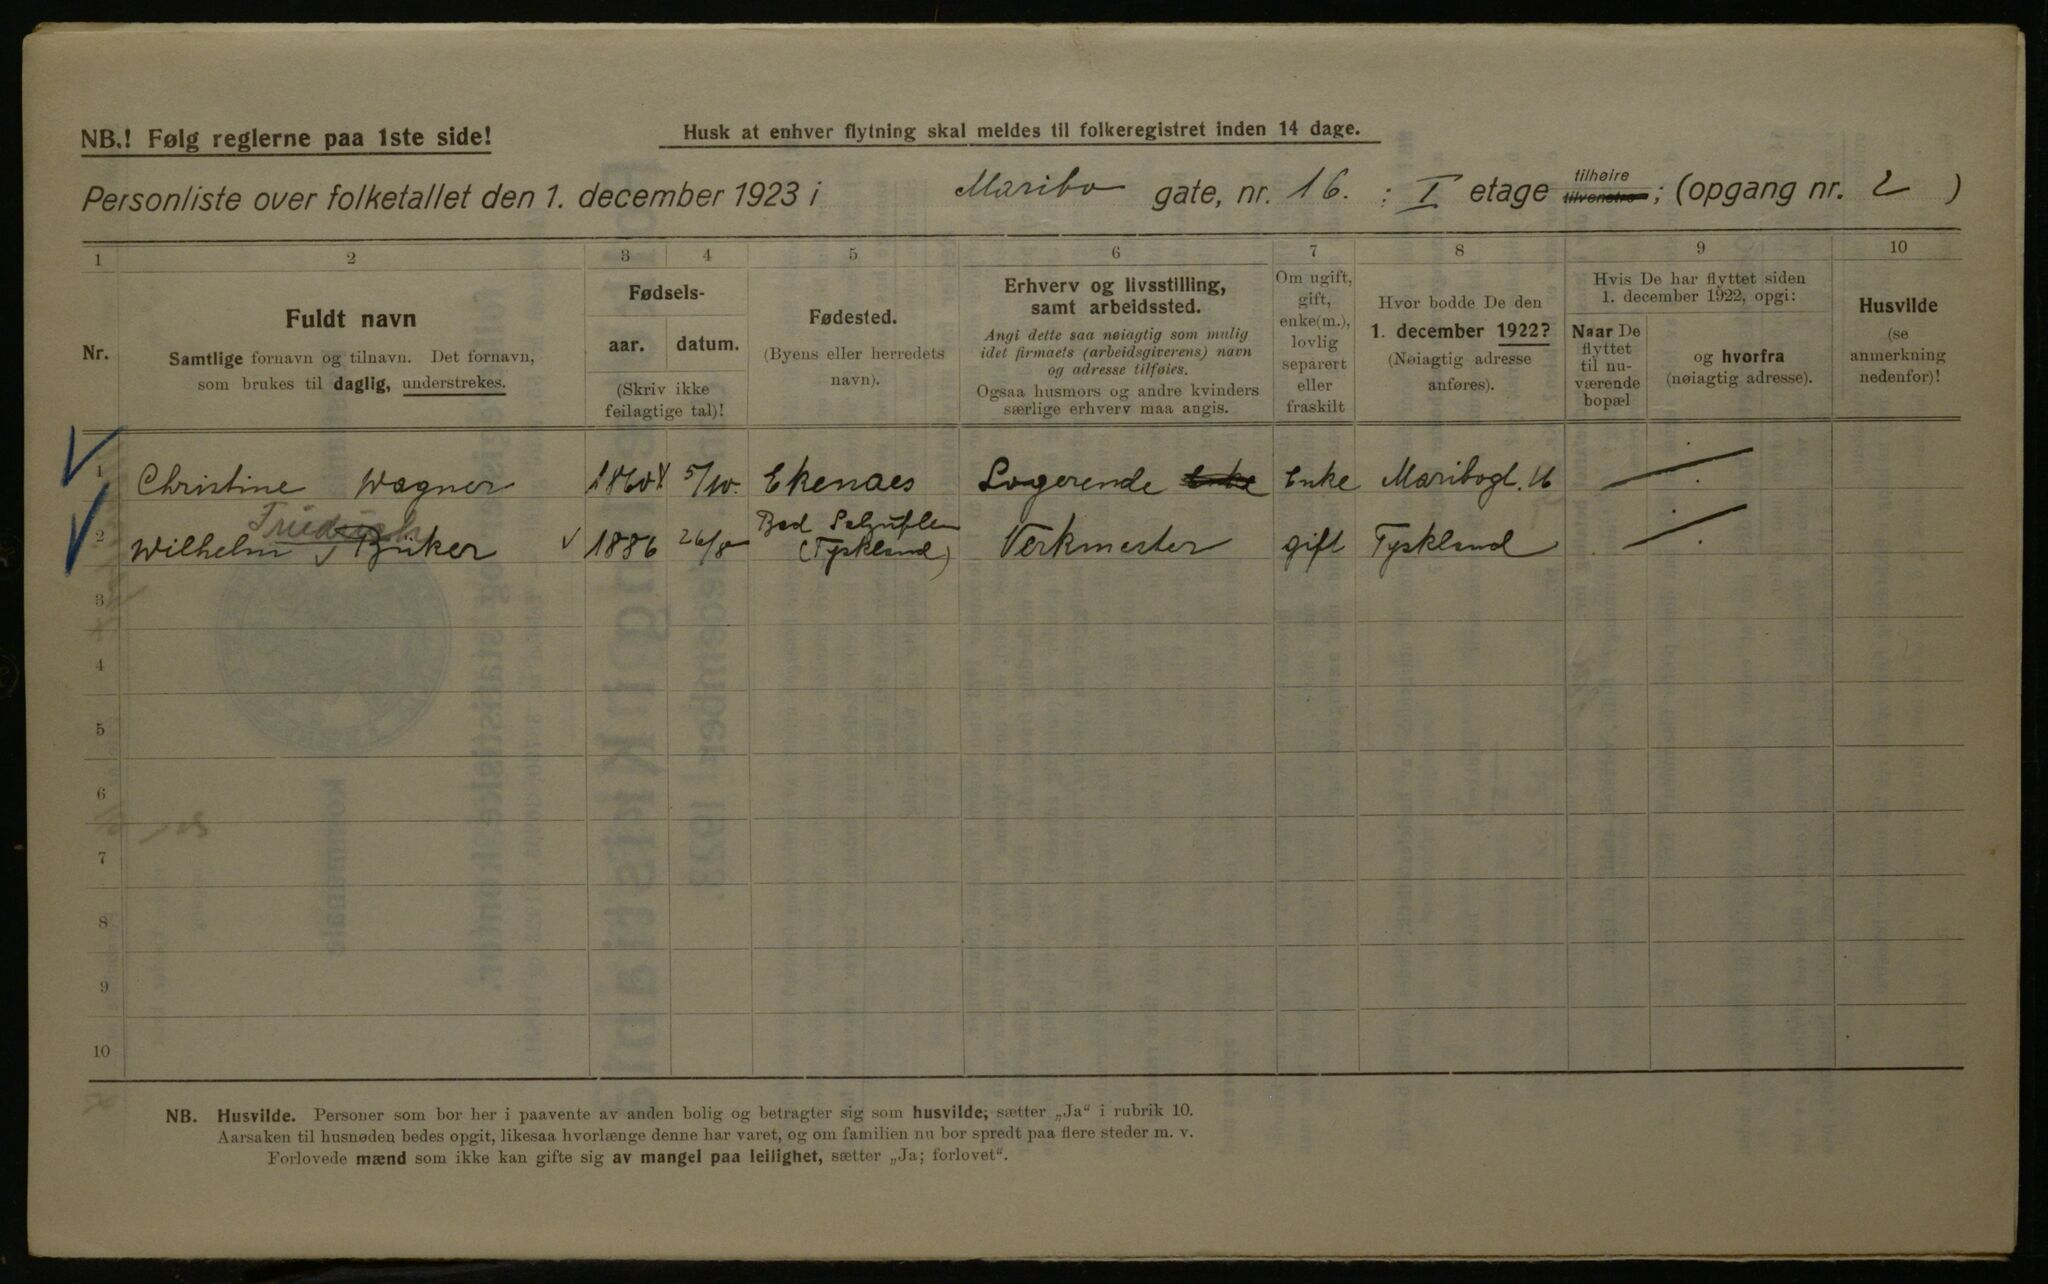 NB.! Følg reglerne paa 1ste side!
Husk at enhver flytning skal meldes til folkeregistret inden 14 dage.
Personliste over folketallet den 1. december 1923 i Maribo gate, nr. 16. : I etage tilhøire tilvenstre; (opgang nr. 2)
1 2 3 4 5 6 7 8 9 10
Nr.
Fuldt navn
Samtlige fornavn og tilnavn. Det fornavn,
som brukes til daglig, understrekes.
Fødsels-
aar. datum.
(Skriv ikke
feilagtige tal)!
Fødested.
(Byens eller herredets
navn).
Erhverv og livsstilling,
samt arbeidssted.
Angi dette saa nøiagtig som mulig
idet firmaets (arbeidsgiverens) navn
og adresse tilføies.
Ogsaa husmors og andre kvinders
særlige erhverv maa angis.
Om ugift,
gift,
enke(m.),
lovlig
separert
eller
fraskilt
Hvor bodde De den
1. december 1922?
(Nøiagtig adresse
anføres).
Hvis De har flyttet siden
1. december 1922, opgi:
Naar De
flyttet
til nu-
værende
bopæl
og hvorfra
(nøiagtig adresse).
Husvilde
(se
anmerkning
nedenfor)!
1 Christine Wagner 1860 5/10. Ekenaes Logerende Enke Enke Maribogt. 16
Friedrich
2 Wilhelm Büker 1886 26/8 Bad Salzuflen (Tyskland) Verkmester gift Tyskland
3
4
5
6
7
8
9
10
NB. Husvilde. Personer som bor her i paavente av anden bolig og betragter sig som husvilde, sætter „Ja“ i rubrik 10.
Aarsaken til husnøden bedes opgit, likesaa hvorlænge denne har varet, og om familien nu bor spredt paa flere steder m. v.
Forlovede mænd som ikke kan gifte sig av mangel paa leilighet, sætter „Ja; forlovet“.